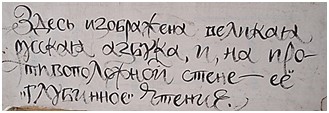 Здесь изображена великая
русская азбука, и, на про-
тивоположной стене — её
"глубинное" чтение.